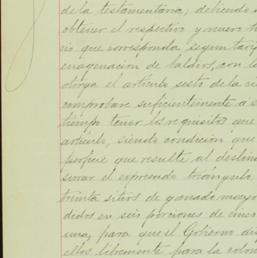 de la testamentaria, debiendo s
obtener el respectivo y nuevo tí
cio que corresponda segun tari
enagenacion de baldíos, con l
otorga el artículo sesto de la ci
comprobar suficientemente a s
tiempo tener los requisitos que
artículo, siendo condicion que
perficie que resulte al deslin
surar el expresado triángulo
treinta sitios de ganado mayo
didos en seis porciones de cinco
una, para que el Gobierno di
ellos libremente para la colon